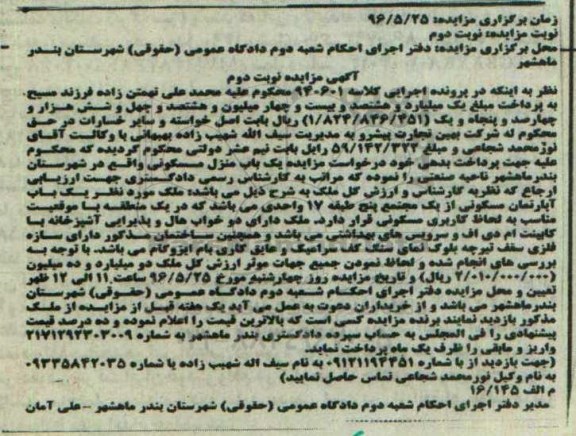 زمان برگزاری مزایده: ۹۶/۵/۲۵
نوبت مزایده: نوبت دوم
محل برگزاری مزایده: دفتر اجرای احکام شعبه دوم دادگاه عمومی (حقوقی) شهرستان بندر
ماهشهر
آگهی مزایده نوبت دوم
نظر به اینکه در پرونده اجرایی کلاسه ۹۴۰۶۰۱ محکوم علیه محمد علی تهمتن زاده فرزند مسیح
به پرداخت مبلغ یک میلیارد و هشتصد و بیست و چهار میلیون و هشتصد و چهل و شش هزار و
چهارصد و پنجاه و یک (۱/۸۲۴/۸۴۶/۴۵۱) ریال بابت اصل خواسته و سایر خسارات در حق
محکوم له شرکت بهین تجارت پیشرو به مدیریت سیف الله شهیب زاده بهبهانی با وکالت آقای
نورمحمد شجاعی و مبلغ ۵۹/۱۴۲/۳۲۳ رایل بابت نیم عشر دولتی محکوم گردیده که محکوم
علیه جهت پرداخت بدهی خود درخواست مزایده یک باب منزل مسکونی واقع در شهرستان
بندرماهشهر ناحیه صنعتی را نموده که مراتب به کارشناس رسمی دادگستری جهت ارزیابی
ارجاع که نظریه کارشناس و ارزش کل ملک به شرح ذیل می باشد: ملک مورد نظر یک باب
آپارتمان مسکونی از یک مجتمع پنج طبقه ۱۷ واحدی می باشد که در یک منطقه با موقعیت
مناسب به لحاظ کاربری مسکونی قرار دارد. ملک دارای دو خواب هال و پذیرایی آشپزخانه با
کابینت ام دی اف و سرویس های بهداشتی می باشد و همچنین ساختمان مذکور دارای سازه
فلزی سقف تیرچه بلوک نمای سنگ کف سرامیک و عایق کاری بام ایزوگام می باشد. با توجه به
بررسی های انجام شده و لحاظ نمودن جمیع جهات موثر ارزش کل ملک دو میلیارد و ده میلیون
(۲/۰۱۰/۰۰۰/۰۰۰ ریال) و تاریخ مزایده روز چهارشنبه مورخ ۹۶/۵/۲۵ ساعت ۱۱ الی ۱۲ ظهر
تعیین و محل مزایده دفتر اجرای احکام شعبه دوم دادگاه عمومی (حقوقی) شهرستان
بندرماهشهر می باشد و از خریداران دعوت بعمل می آید یک هفته قبل از مزایده از ملک
مذکور بازدید نمایند برنده مزایده کسی است که بالاترین قیمت را اعلام نموده و ده درصد قیمت
پیشنهادی را فی المجلس به حساب سپرده دادگستری بندر ماهشهر به شماره ۲۱۷۱۲۹۲۳۰۳۰۰۹
واریز و مابقی را ظرف یک ماه پرداخت نماید.
(جهت بازدید از با شماره ۰۹۱۲۱۱۹۴۴۵۱ به نام سیف اله شهیب زاده یا شماره ۰۹۳۳۵۸۴۲۰۳۵
به نام وکیل نورمحمد شجاعی تماس حاصل نمایید)
م الف ۱۶/۱۴۵
مدیر دفتر اجرای احکام شعبه دوم دادگاه عمومی (حقوقی) شهرستان بندر ماهشهر – علی آمان